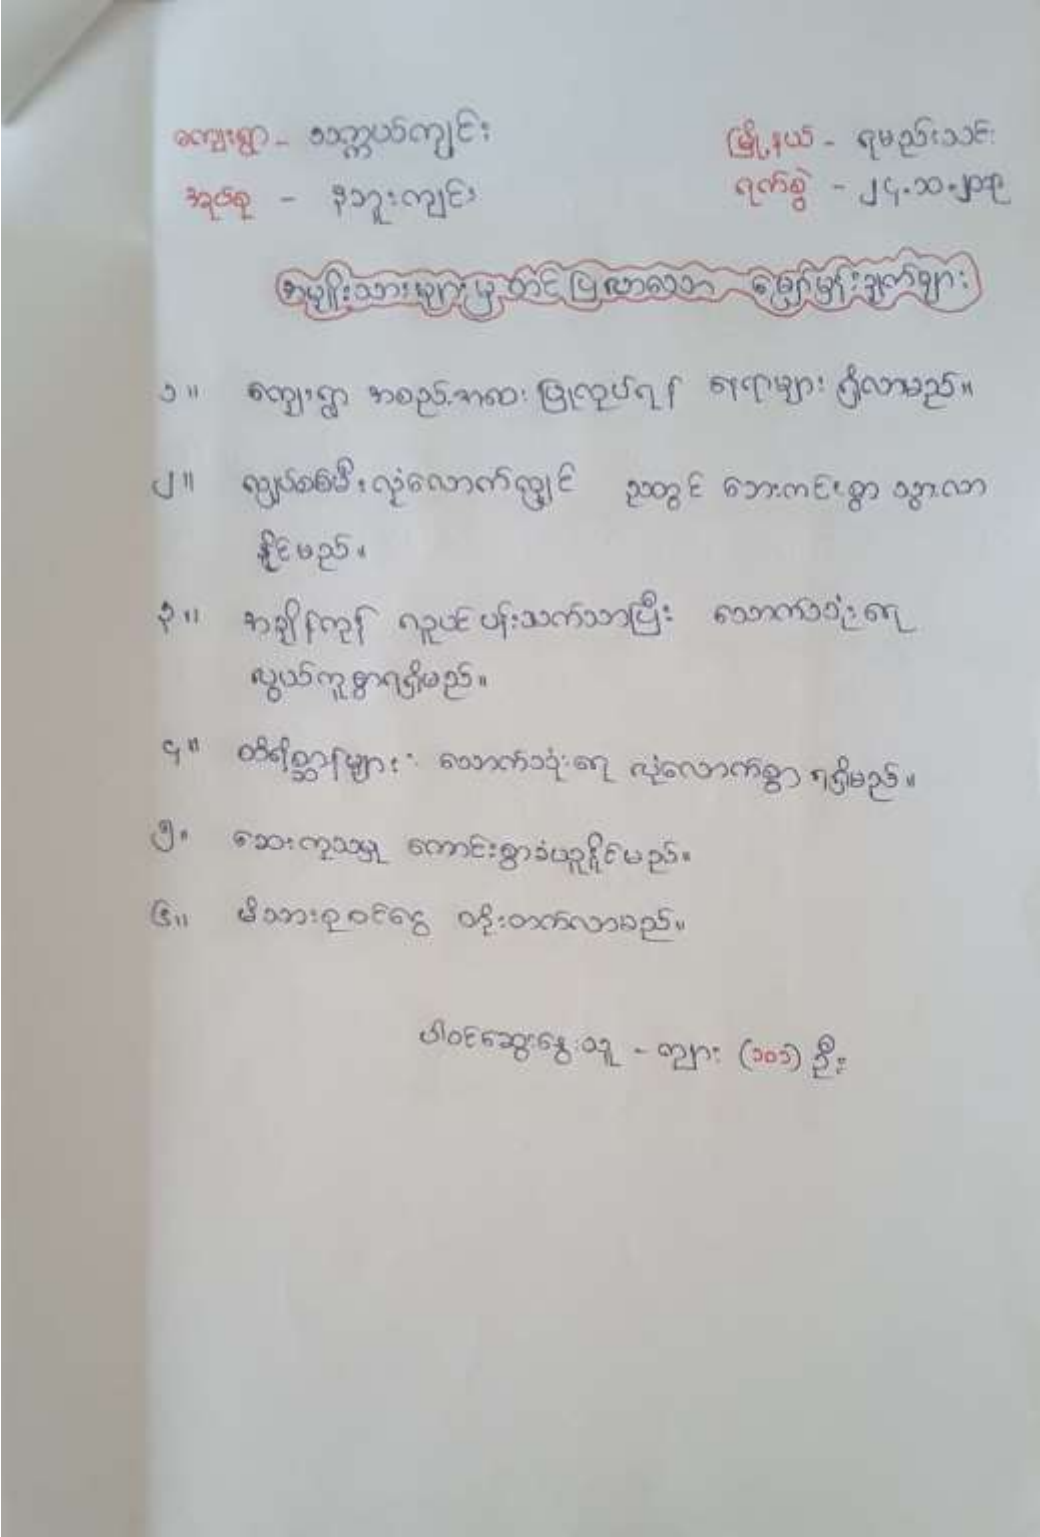 ကျေးရွာ - သက္ကယ်ကျင်း မြို့နယ် - ရမည်းသင်း
အုပ်စု - နဘူးကျင်း ရက်စွဲ - ၂၄.၁၀.၂၀၁၃
အမျိုးသားများမှ တင်ပြလာသော မျှော်မှန်းချက်များ
၁။ ကျေးရွာ အစည်းအဝေး ပြုလုပ်ရန် နေရာများ ရှိလာမည်။
၂။ လျှပ်စစ်မီး လုံလောက်လျှင် ညတွင် ဘေးကင်းစွာ သွားလာ
နိုင်မည်။
၃။ အချိန်ကုန် လူပင်ပန်းသက်သာပြီး သောက်သုံးရေ
လွယ်ကူစွာရရှိမည်။
၄။ တိရိစ္ဆာန်များ သောက်သုံးရေ လုံလောက်စွာ ရရှိမည်။
၅။ ဆေးကုသမှု ကောင်းစွာခံယူနိုင်မည်။
၆။ မိသားစုဝင်ငွေ တိုးတက်လာမည်။
ပါဝင်ဆွေးနွေးသူ - ကျား (၁၀၁) ဦး